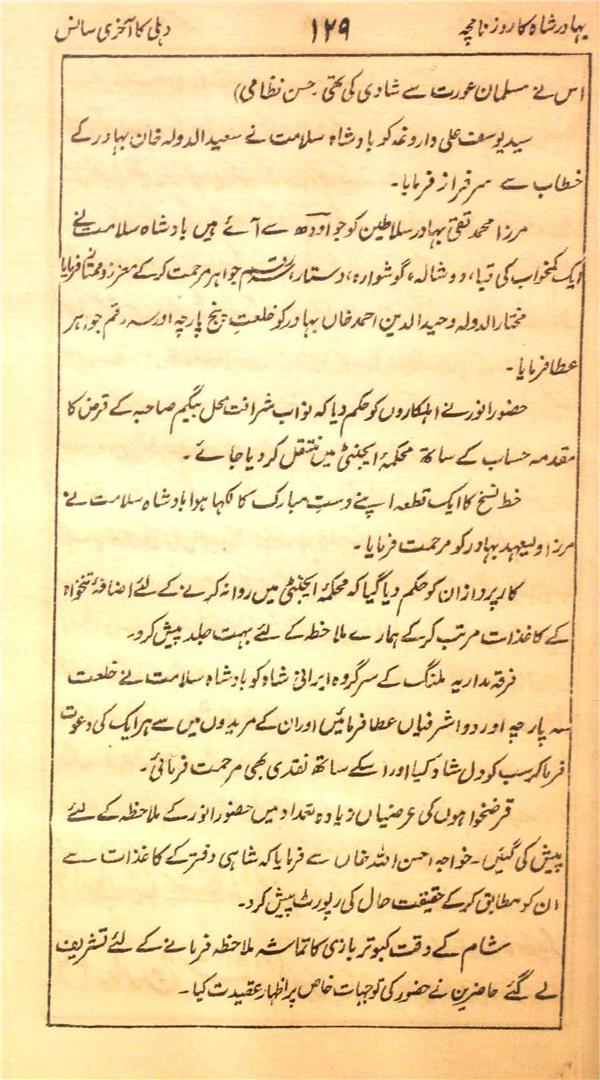 بہادر شاہ کا روزنامچہ ۱۲۹ دہلی کا آخری سانس
اس نے مسلمان عورت سے شادی کی تھی۔ حسن نظامی)
سید یوسف علی داروغہ کو بادشاہ سلامت نے سعید الدولہ خان بہادر کے
خطاب سے سرفراز فرمایا۔
مرزا محمد تقی بہادر سلاطین کو جو اودھ سے آئے ہیں بادشاہ سلامت نے
ایک کمخواب کی قبا، دوشالہ، گوشوارہ، دستار، سہ رقم جواہر مرحمت کر کے معزز و ممتاز فرمایا
مختار الدولہ وحید الدین احمد خاں بہادر کو خلعت پنج پارچہ اور سہ رقم جواہر
عطا فرمایا۔
حضور انور نے اہلکاروں کو حکم دیا کہ نواب شرافت محل بیگم صاحبہ کے قرض کا
مقدمہ حساب کے ساتھ محکمۂ ایجنٹی میں منتقل کر دیا جائے۔
خط نسخ کا ایک قطعہ اپنے دستِ مبارک کا لکھا ہوا بادشاہ سلامت نے
مرزا ولیعہد بہادر کو مرحمت فرمایا۔
کارپردازان کو حکم دیا گیا کہ محکمۂ ایجنٹی میں روانہ کرنے کے لئے اضافۂ تنخواہ
کے کاغذات مرتب کر کے ہمارے ملاحظہ کے لئے بہت جلد پیش کرو۔
فرقہ مداریہ ملنگ کے سرگروہ ایرانی شاہ کو بادشاہ سلامت نے خلعت
سہ پارچہ اور دو اشرفیاں عطا فرمائیں اور ان کے مریدوں میں سے ہر ایک کی دعوت
فرما کر سب کو دل شاد کیا اور اسکے ساتھ نقدی بھی مرحمت فرمائی۔
قرضخواہوں کی عرضیاں زیادہ تعداد میں حضور انور کے ملاحظہ کے لئے
پیش کی گئیں۔ خواجہ احسن اللہ خاں سے فرمایا کہ شاہی دفتر کے کاغذات سے
ان کو مطابق کر کے حقیقت حال کی رپورٹ پیش کرو۔
شام کے وقت کبوتر بازی کا تماشہ ملاحظہ فرمانے کے لئے تشریف
لے گئے حاضرین نے حضور کی توجہات خاص پر اظہار عقیدت کیا۔